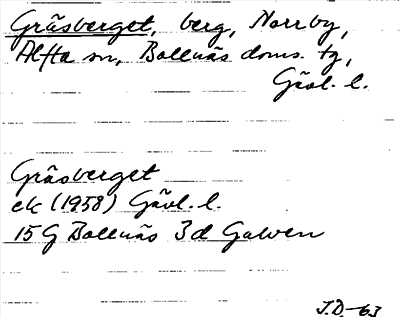 Gräsberget, berg, Norrby,
Alfta sn, Bollnäs doms. tg,
Gävl. l.
Gräsberget
ek (1958) Gävl. l.
15 G Bollnäs 3d Galven
J.D.-63